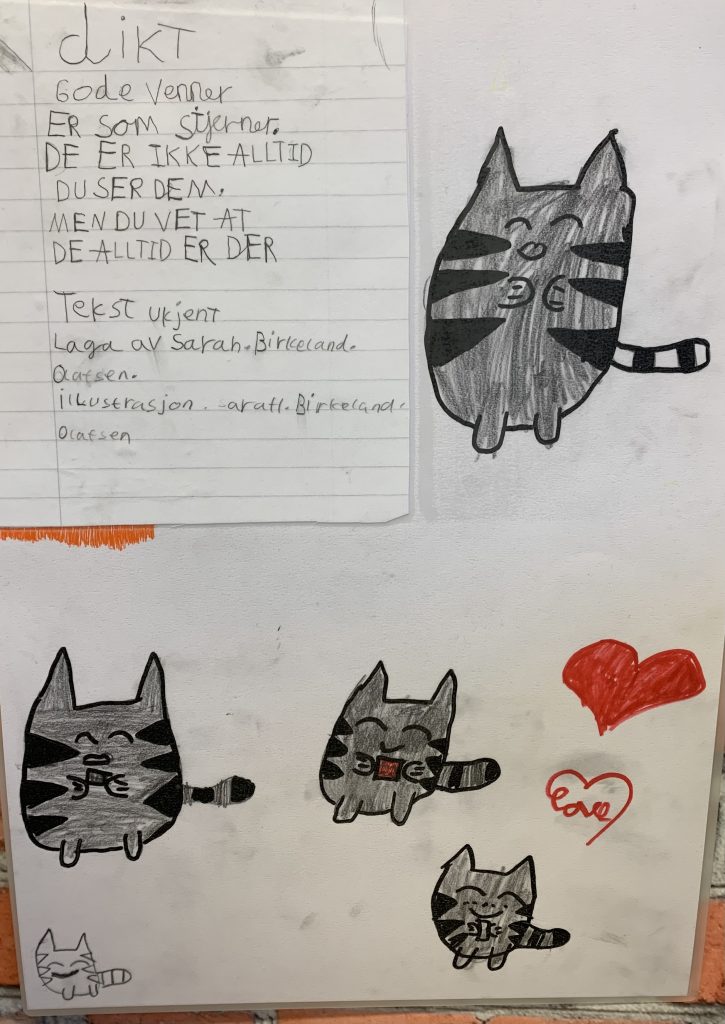 dikt
Gode venner
ER SOM stjerner.
DE ER IKKE ALLTID
DU SER DEM.
MEN DU VET AT
DE ALLTID ER DER
Tekst ukjent
Laga av Sarah. Birkeland.
Olafsen.
illustrasjon. Birkeland.
Olafsen
Love